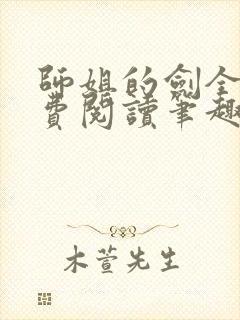 師姐的劍全
費閱讀筆趣
木萱先生